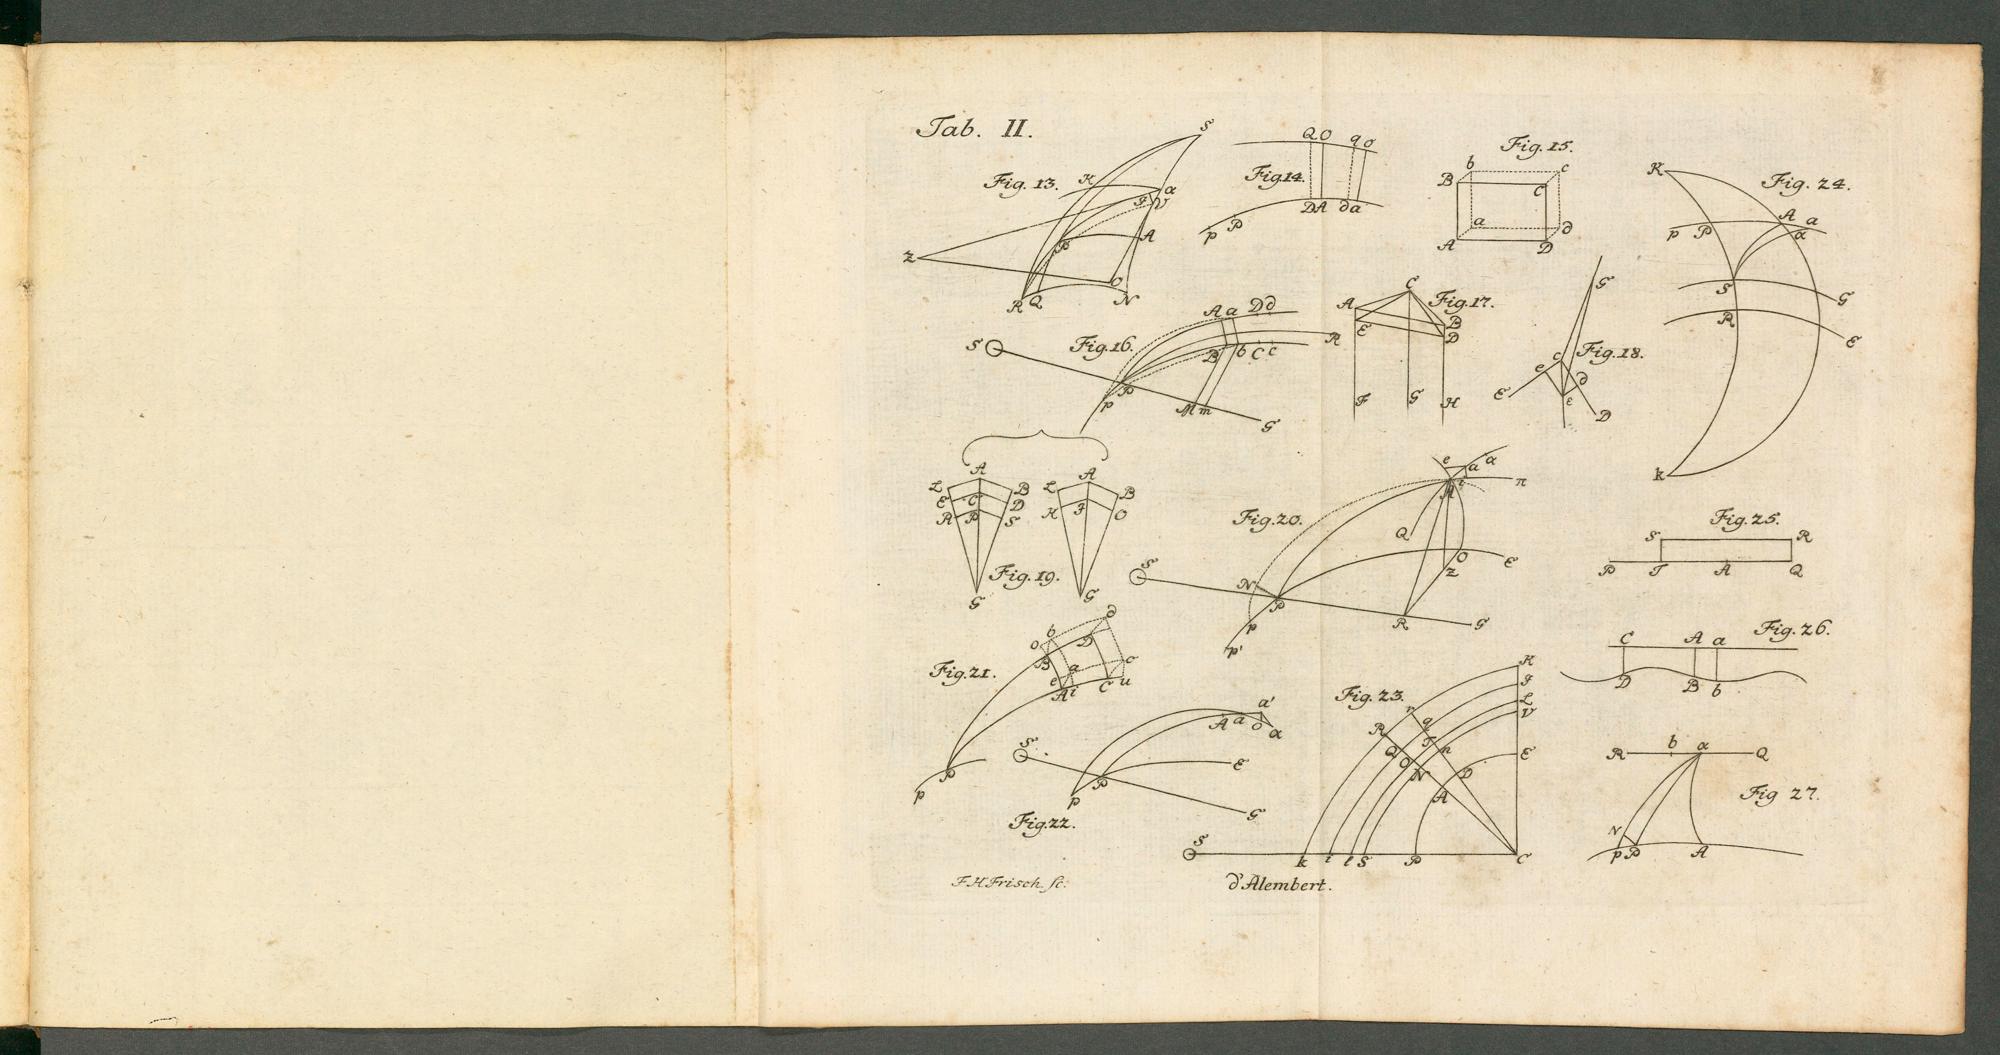 Tab. II.
Fig. 13.
S
K
a
V
P
A
Z
O
R Q
N
Fig14.
Q O q o
D A d a
p P
Fig. 15.
b c
B C
a d
A D
Fig. 24.
K
A a
p P α
S G
R E
k
Fig.16.
S
A a D d
R
B b C c
p P
M m
G
Fig.17.
C
A B
E D
F G H
Fig.18.
G
c
e d
E ε D
Fig.19.
A
L B
E C D
R P S
G
A
L B
H F O
G
Fig.20.
e a α
A i π
Q
S
O E
Z
N P
p R G
p'
Fig.25.
S R
P T A Q
Fig.21.
b d
o D
B
a c
e
A i C u
P
p
Fig.26.
C A a
D B b
Fig.22.
a'
A a o α
S
E
P
p
G
Fig.23.
H
F
L
V
E
r
R q
Q T n
O N D
A
S
k i l S P C
Fig 27.
R b a Q
N
p P A
F.H.Frisch sc.
d'Alembert.